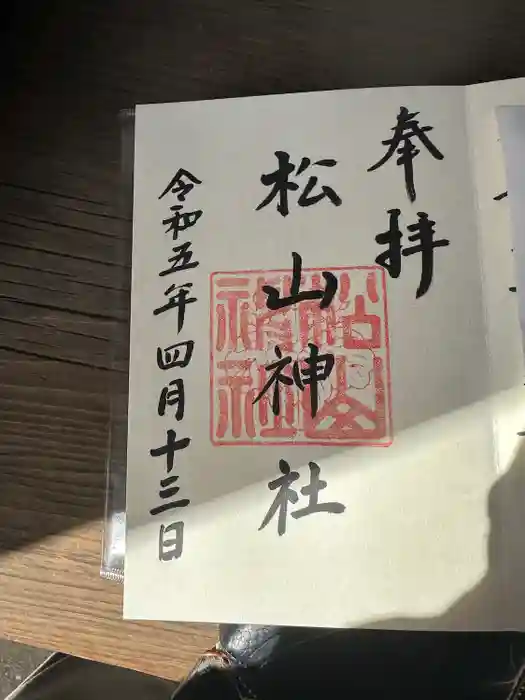 奉拝
松山神社
松山神社
令和五年四月十三日